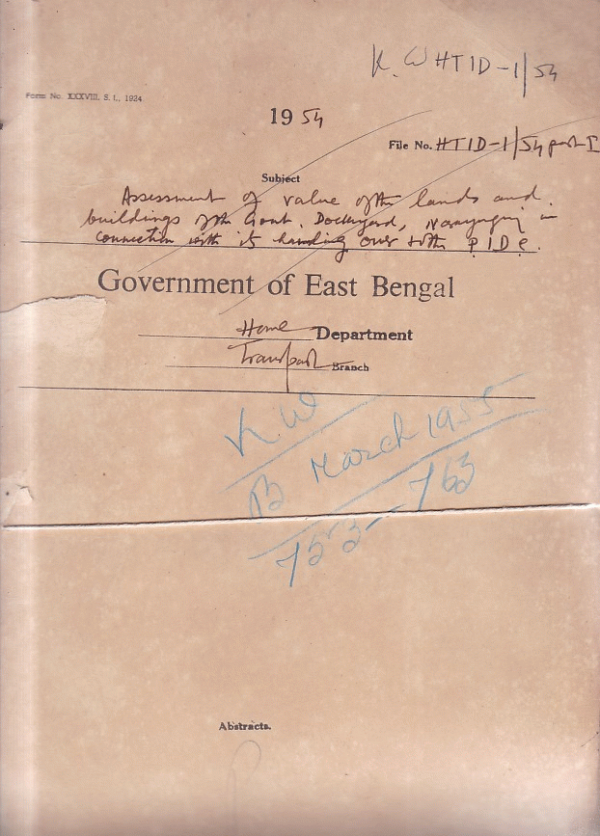 K. W HTID-1/54
Form No. XXXVIII, S. I., 1924
1954
File No. HTID-1/54 part I
Subject
Assessment of value of the lands and
buildings of the Govt. Dockyard, Narayanganj in
connection with its handing over to the P.I.D.C.
Government of East Bengal
Home Department
Transport Branch
K. W
B March 1955
753-763
Abstracts.